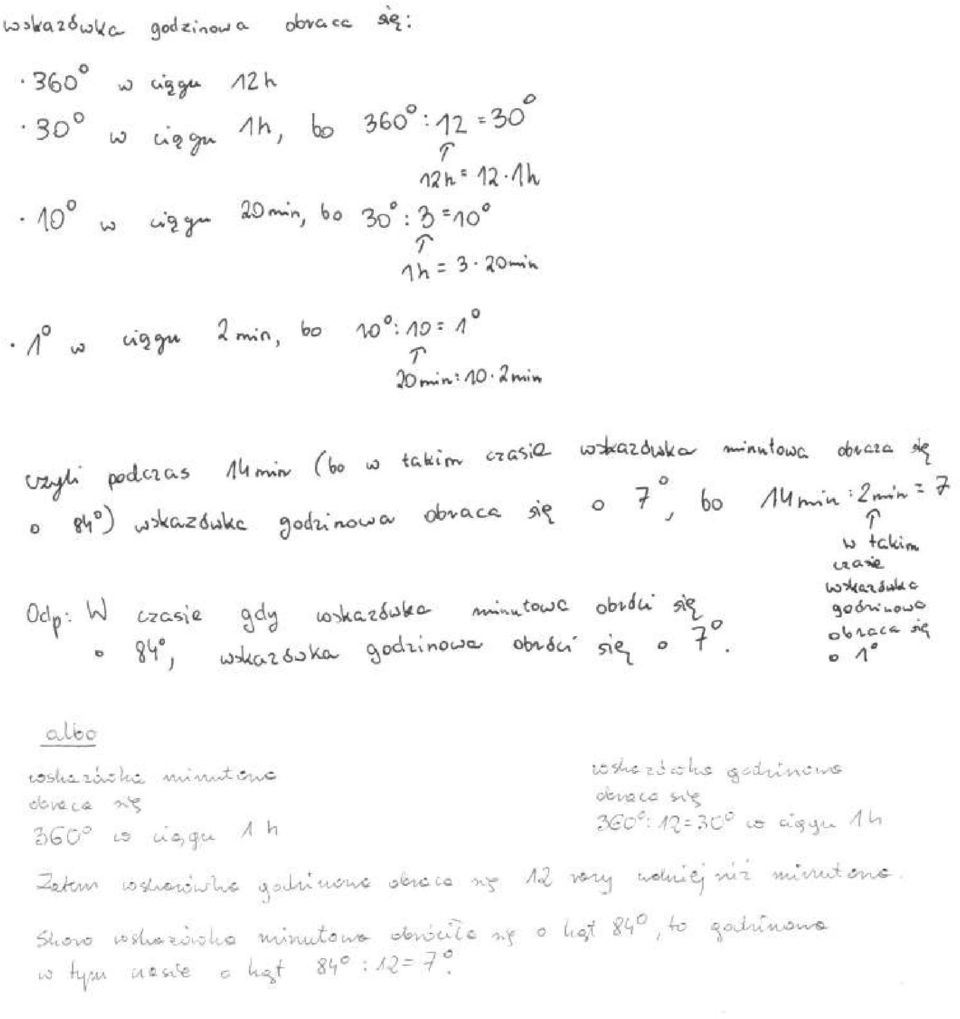 wskazówka godzinowa obraca się:
· 360° w ciągu 12h
· 30° w ciągu 1h, bo 360° : 12 = 30°
↑
12h = 12 · 1h
· 10° w ciągu 20min, bo 30° : 3 = 10°
↑
1h = 3 · 20min
· 1° w ciągu 2min, bo 10° : 10 = 1°
↑
20min = 10 · 2min
czyli podczas 14min (bo w takim czasie wskazówka minutowa obraca się
o 84°) wskazówka godzinowa obraca się o 7°, bo 14min : 2min = 7
↑
w takim
czasie
wskazówka
godzinowa
obraca się
o 1°
Odp: W czasie gdy wskazówka minutowa obróci się
o 84°, wskazówka godzinowa obróci się o 7°.
albo
wskazówka minutowa
obraca się
360° w ciągu 1h
wskazówka godzinowa
obraca się
360° : 12 = 30° w ciągu 1h
Zatem wskazówka godzinowa obraca się 12 razy wolniej niż minutowa.
Skoro wskazówka minutowa obróciła się o kąt 84°, to godzinowa
w tym czasie o kąt 84° : 12 = 7°.